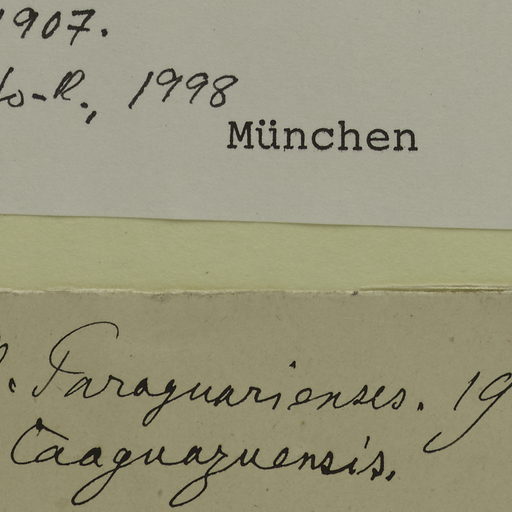 1907.
to-R., 1998
München
. Paraguarienses. 19
Caaguazuensis.